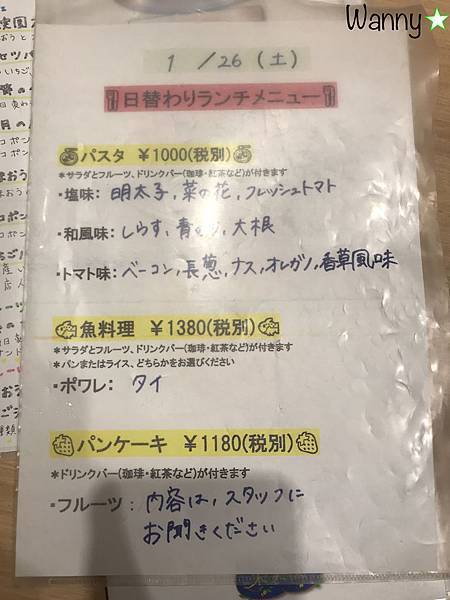 Wanny★
1 /26 (土)
日替わりランチメニュー
パスタ ￥1000(税別)
＊サラダとフルーツ、ドリンクバー(珈琲・紅茶など)が付きます
・塩味: 明太子, 菜の花, フレッシュトマト
・和風味: しらす, 青じそ, 大根
・トマト味: ベーコン, 長葱, ナス, オレガノ, 香草風味
魚料理 ￥1380(税別)
＊サラダとフルーツ、ドリンクバー(珈琲・紅茶など)が付きます
＊パンまたはライス、どちらかをお選びください
・ポワレ: タイ
パンケーキ ￥1180(税別)
＊ドリンクバー(珈琲・紅茶など)が付きます
・フルーツ: 内容は, スタッフに
お聞きください